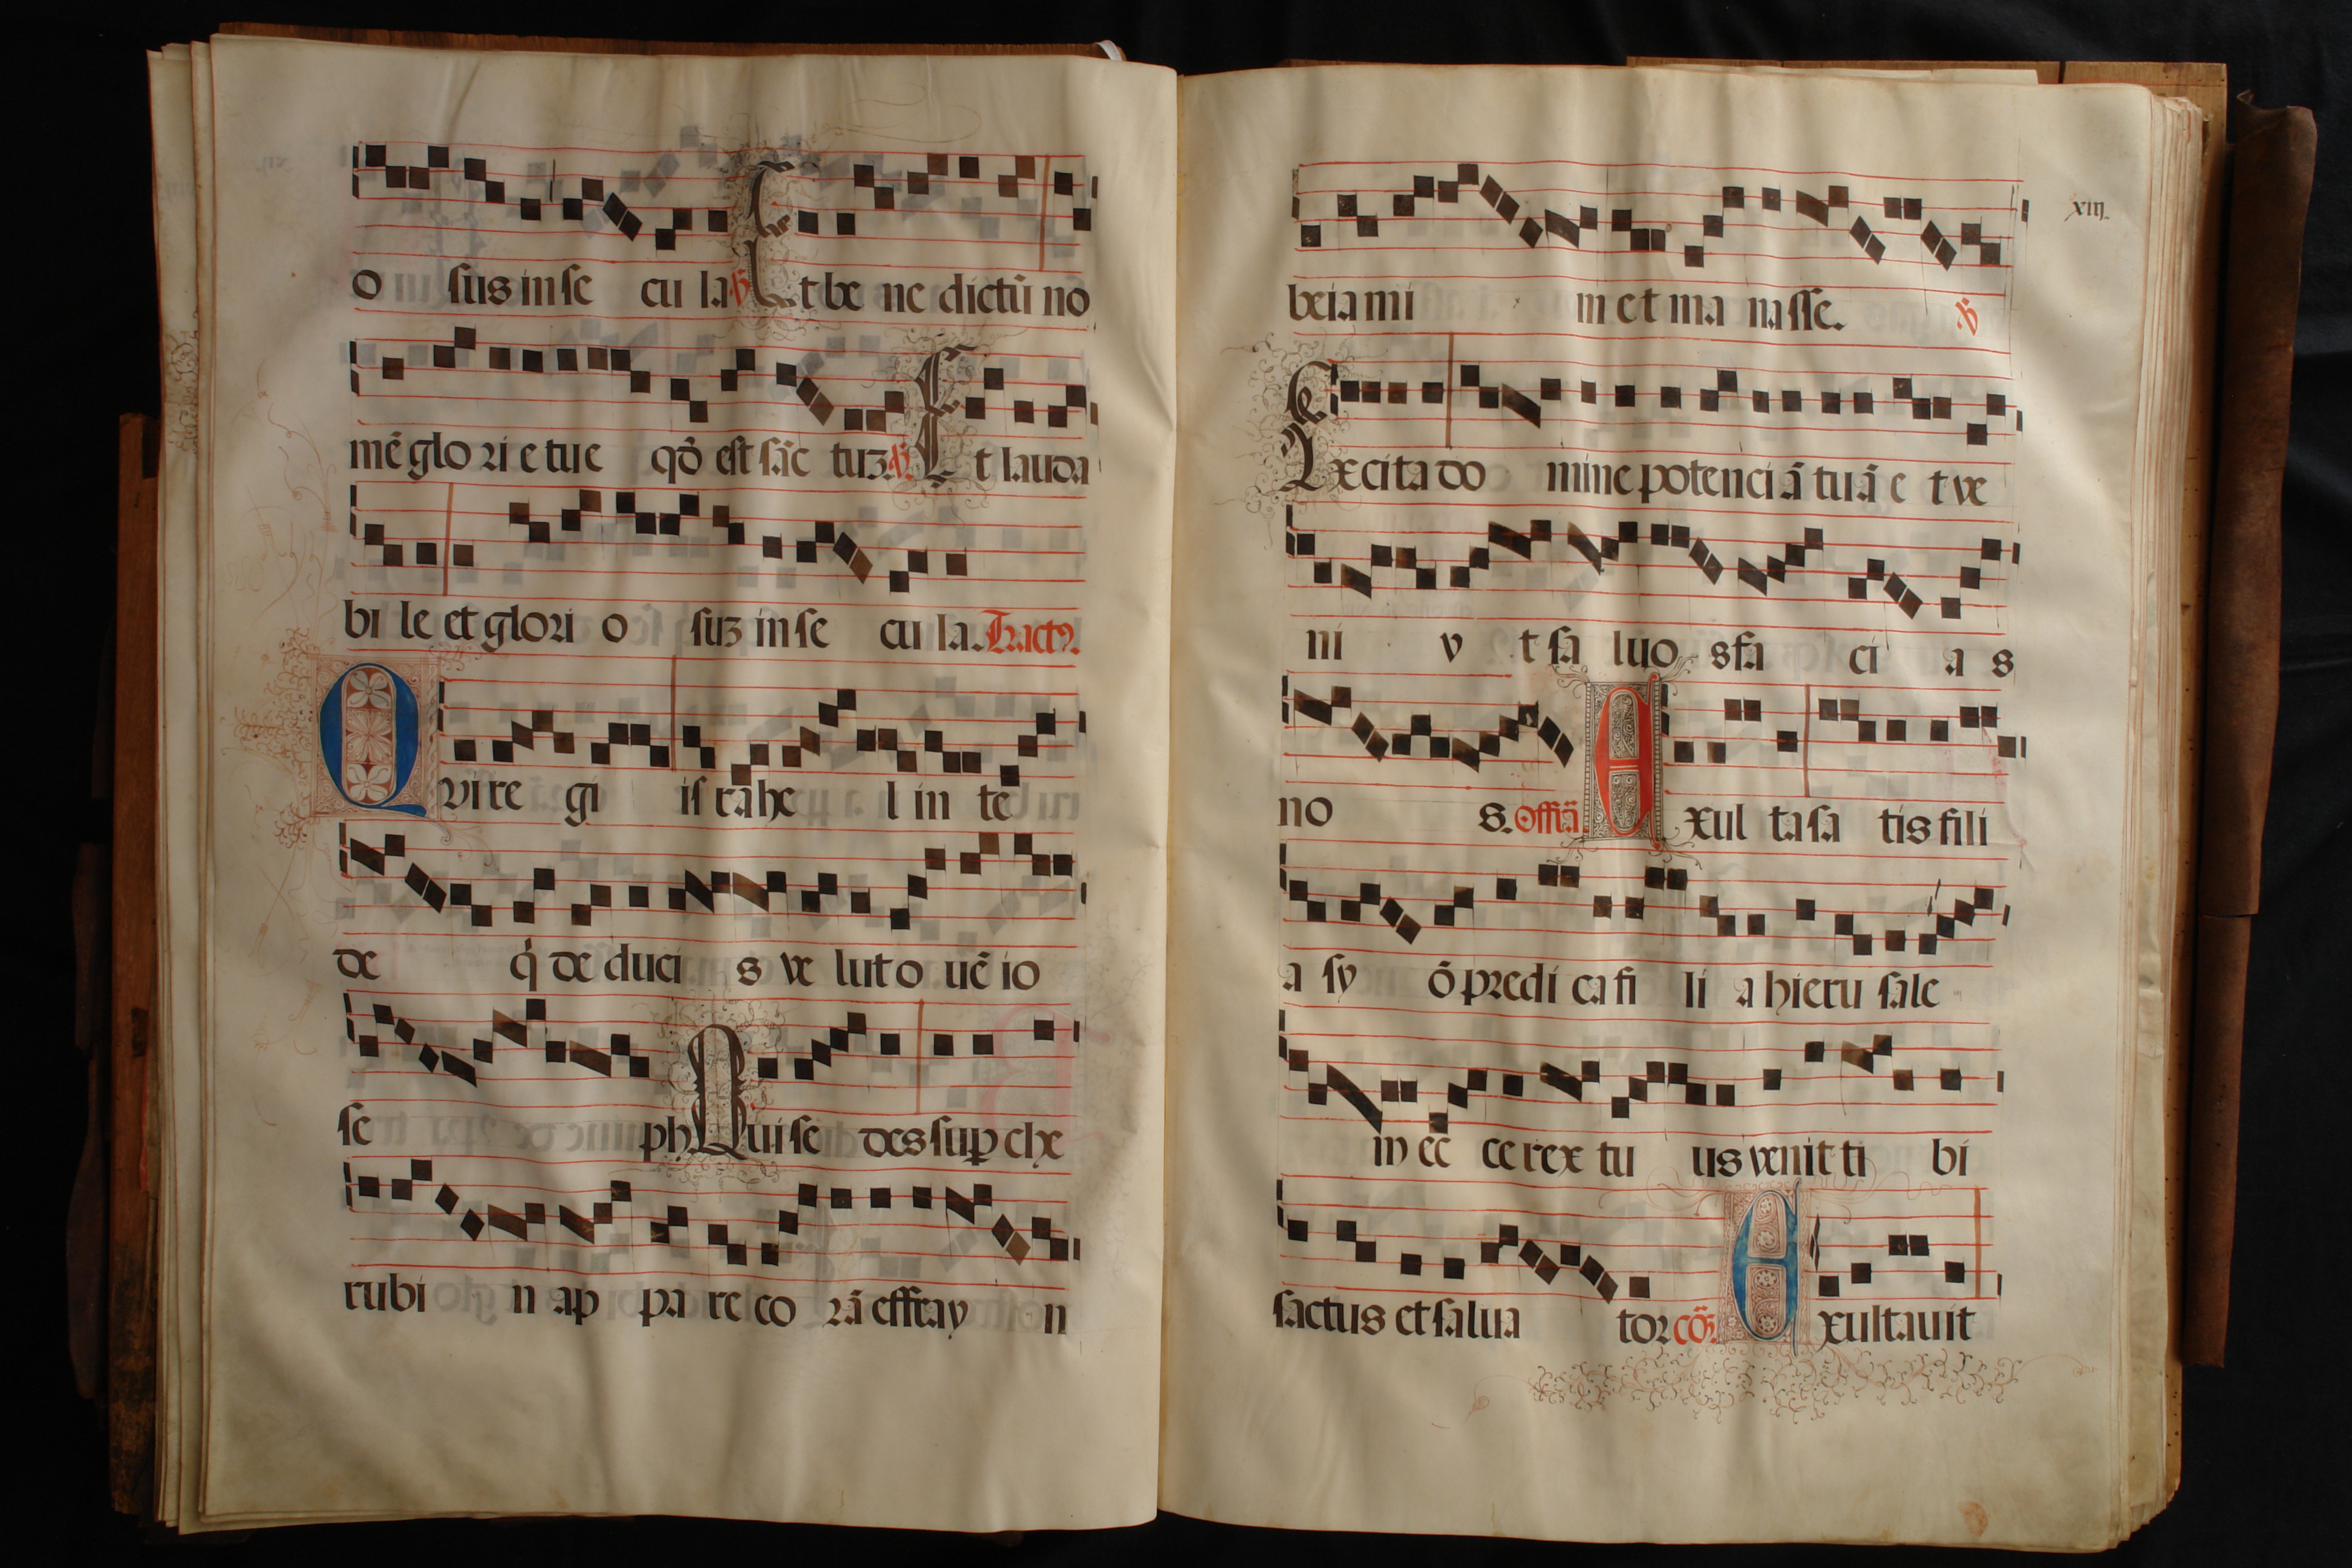 o sus in se cu la ℣ Et be ne dictū no
mē glo ri e tue qđ est sāc tuʒ ℣ Et lauda
bi le et glori o suʒ in se cu la. Tractꝰ.
Qvi re gi is rahe l in te
de q̇ de duci s ve lut o uē io
se ph Qui se des suꝑ che
rubi n ap pa re co rā effray n
xiij.
beiami m et ma nasse. ℣
Excita do mine potenciā tuā e t ve
ni v t sa luo s fa ci a s
no s. Offā. Exul ta sa tis fili
a sy ō predi ca fi li a hieru sale
m ec ce rex tu us venit ti bi
sactus et salua tor cō. Exultauit